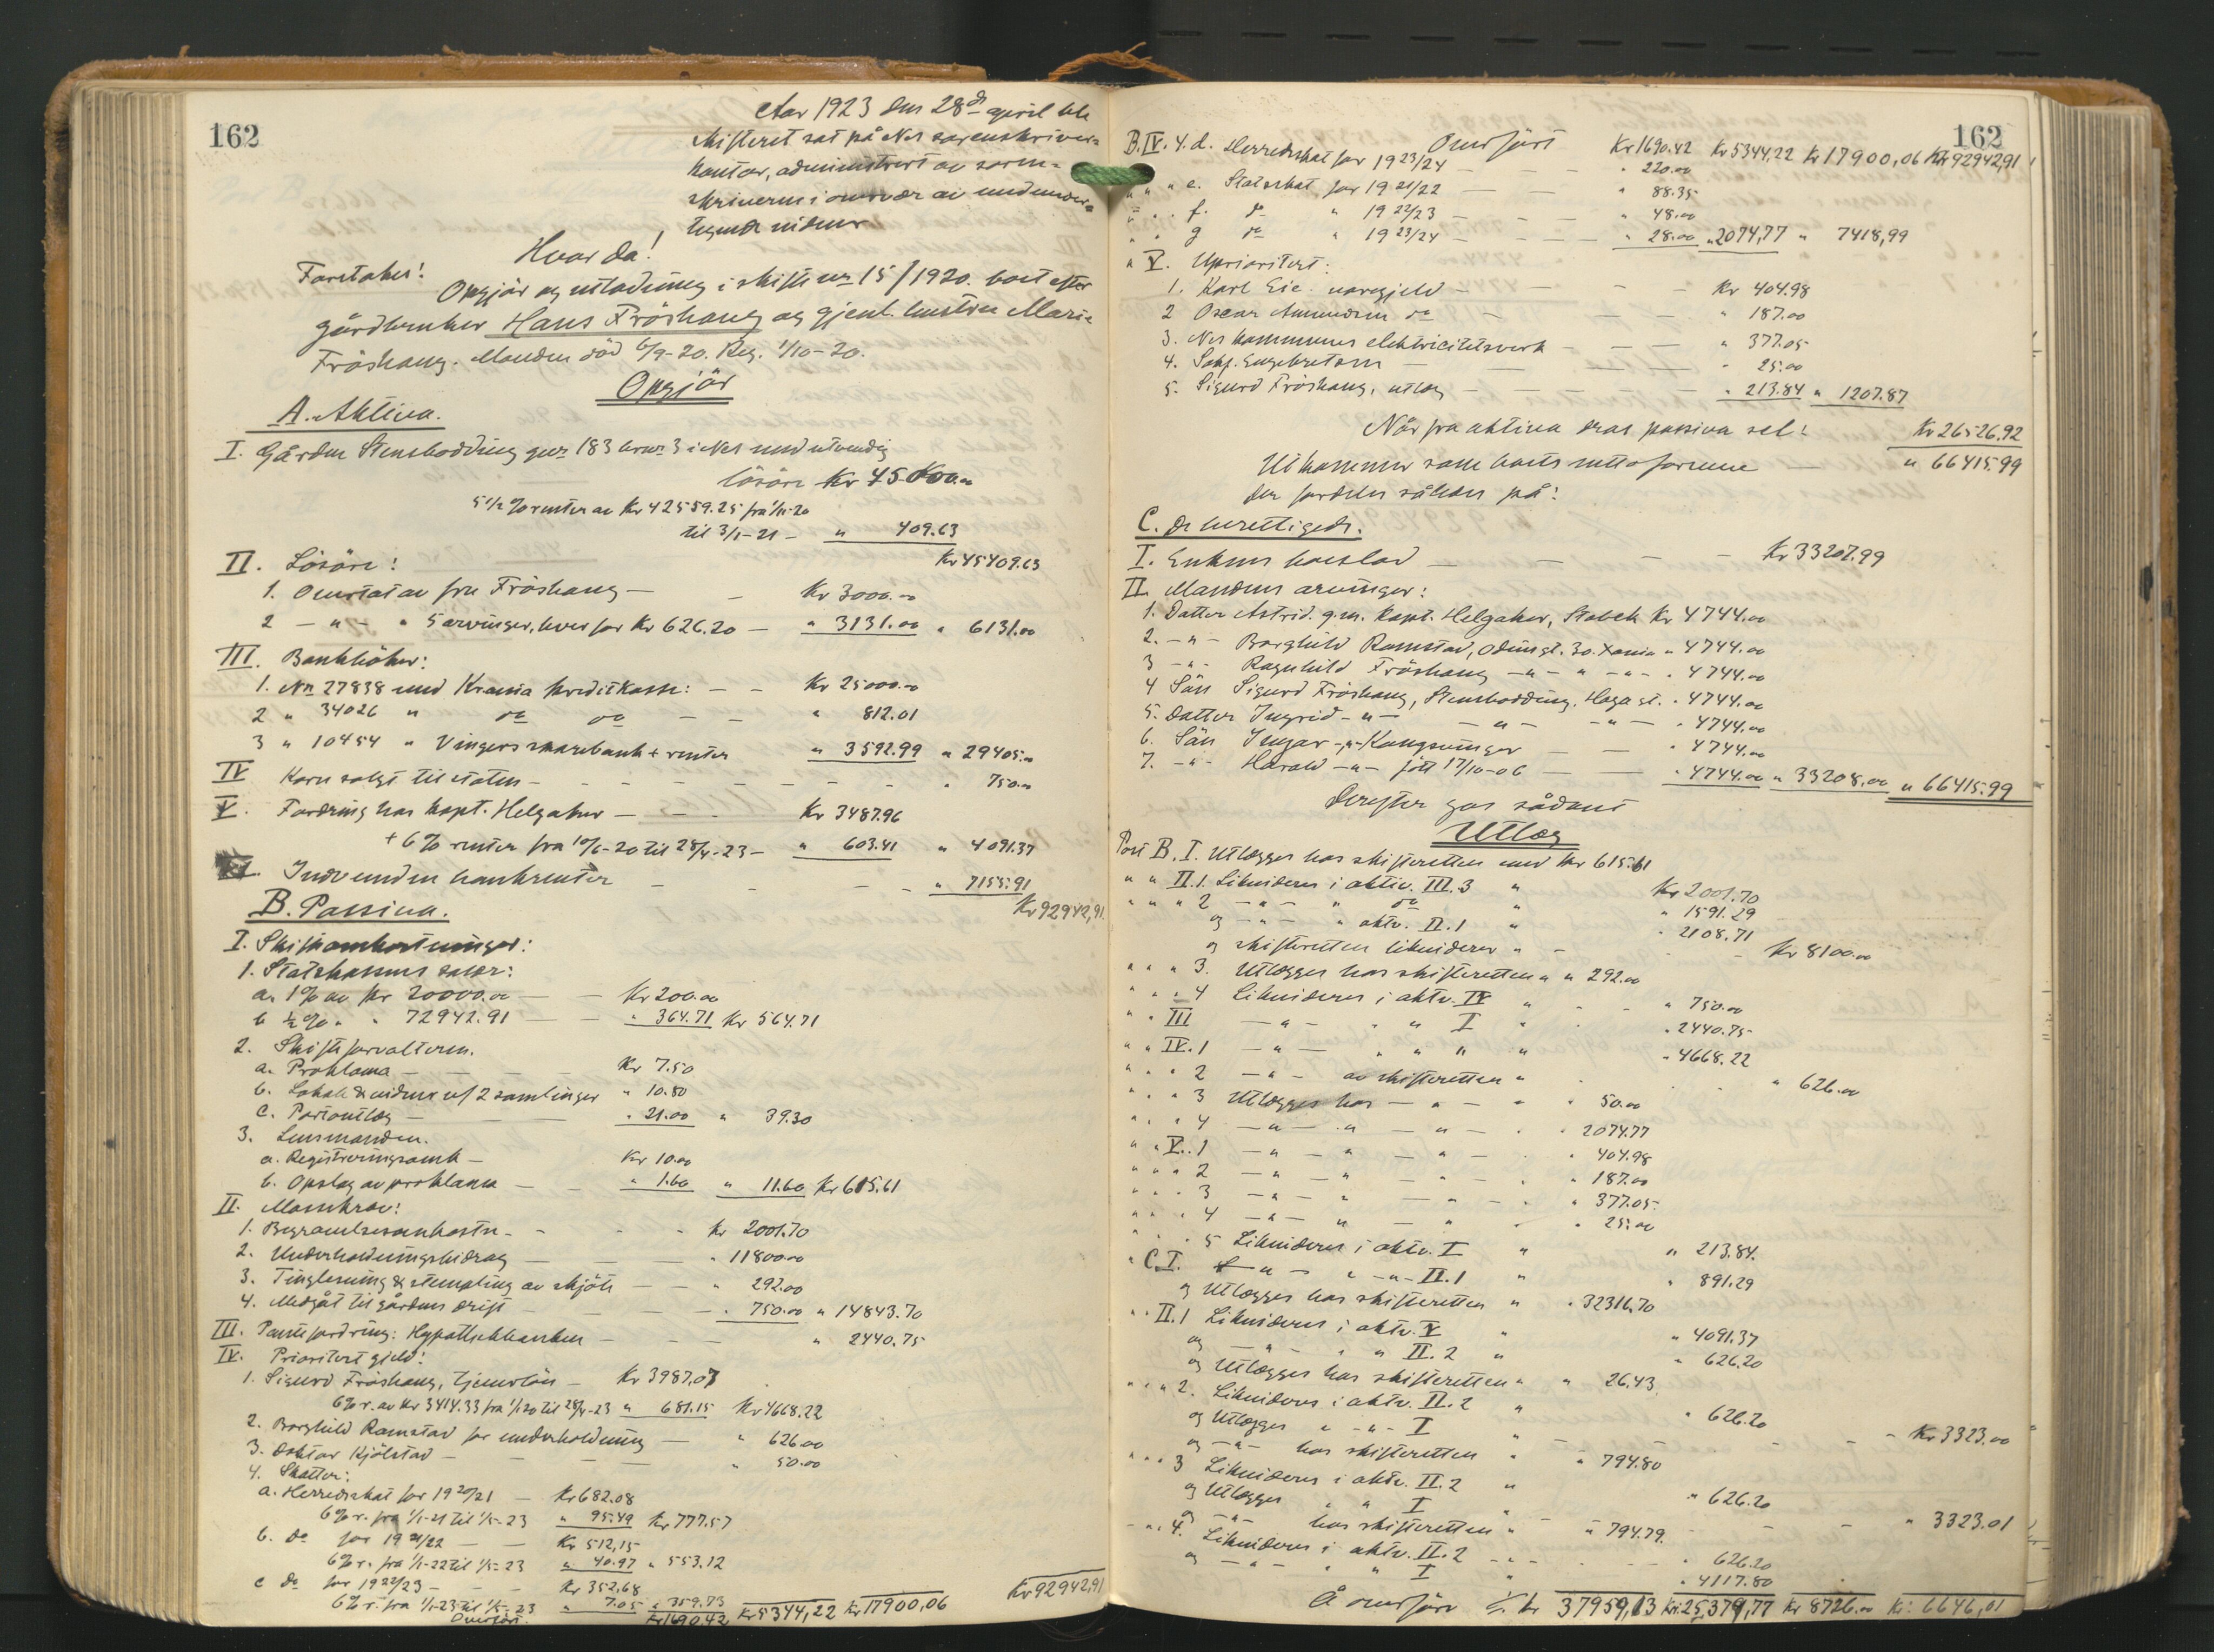 162
Aar 1923 den 28de april ble
skifteret sat på Nes sorenskriver-
kontor, administrert av soren-
skriveren i overvær av underver-
tegnede vidner
Hvor da!
Foretokes!
Opgjör og utlodning i skifte nr 15/1920. boet efter
gårdbruker Hans Fröshaug og gjenl. hustru Marie
Fröshaug. Manden död 6/9-20. Reg. 1/10-20.
Opgjör
A. Aktiva.
I. Gården Stensbodding gnr 183 brnr 3 i Nes med utvendig
lösöre Kr 45000.00
5 1/2 % renter av Kr 42559.25 fra 1/11-20
til 3/1-21 - " 409.63
Kr 45409.63
II. Lösöre:
1. Overtat av fru Fröshaug - - Kr 3000.00
2 - " - " 5 arvinger, hver for Kr 626.20 - " 3131.00 " 6131.00
III. Bankböker:
1. No 27838 med Krania Kreditkasse: - - Kr 25000.00
2 " 34026 " do do - - " 812.01
3 " 10454 " Vingers sparebank + renter " 3592.99 " 29405.00
IV Korn solgt til staten - - - - - - - " 750.00
V. Fordring hos kapt. Helgaker - - - Kr 3487.96
+ 6% renter fra 10/6-20 til 28/4-23 - " 603.41 " 4091.37
VI. Indvundne bankrenter - - - - " 7155.91
Kr 92942,91
B. Passiva.
I. Skifteomkostninger:
1. Statskassens salær:
a. 1% av Kr 20000.00 - - Kr 200.00
b 1/2 % " " 72942.91 - - " 364.71 Kr 564.71
2. Skifteforvalteren.
a. Proklama - - - - Kr 7.50
b. Lokale & vidner v/ 2 samlinger " 10.80
c. Portoutlæg - - - " 21.00 " 39.30
3. Lensmanden.
a. Registreringsomk - Kr 10.00
b. Opslag av proklama - " 1.60 " 11.60 Kr 615.61
II. Massekrav:
1. Begravelsesomkostn. - - - Kr 2001.70
2. Underholdningsbidrag - - - " 11800.00
3. Tinglesning & stempling av skjöte - - " 292.00
4. Medgåt til gårdens drift - - - - " 750.00 " 14843.70
III. Pantefordring: Hypothekbanken - - - " 2440.75
IV. Prioritert gjeld:
1. Sigurd Fröshaug, tjenerlön - Kr 3987.07
6% r. av Kr 3414.33 fra 1/1 20 til 28/4-23 " 681.15 Kr 4668.22
2. Borghild Ramstad for underholdning - " 626.00
3. Doktor Kjölstad - - - - " 50.00
4. Skatter:
a. Herredsskat for 1920/21 - Kr 682.08
6% r. fra 1/1-21 til 1/5-23 " 95.49 Kr 777.57
b. do for 1921/22 - - Kr 512,15
6% r. fra 1/1-22 til 1/5-23 " 40.97 " 553.12
c do for 1922/23 - - - Kr 352,68
6% r. fra 1/1-23 til 1/5-23 " 7.05 " 359.73
Overföres Kr 1690.42 Kr 5344,22 Kr 17900,06 Kr 92942,91
162
Overfört Kr 1690.42 Kr 5344,22 Kr 17900,06 Kr 92942,91
B. IV. 4. d. Herredsskat for 1923/24 - - - " 220.00
" " " e. Statsskat for 1921/22 - - - " 88.35
" " " f. do " 1922/23 - - - " 48.00
" " " g do " 1923/24 - - - - " 28.00 " 2074,77 " 7418,99
" V. Uprioritert:
1. Karl Eie. varegjeld - - - - Kr 404.98
2 Oscar Amundsen do - - - " 187.00
3. Nes kommunes elektricitetsverk - - - " 377.05
4. Sakf. Engebretsen - - - " 25.00
5. Sigurd Fröshaug, utlæg - - - - " 213.84 " 1207.87
Når fra aktiva dras passiva sel: Kr 26526.92
Utkommer som boets nettoformue - " 66415.99
der fordeles således på:
C. De berettigede.
I. Enkens boeslod - - - - Kr 33207.99
II. Mandens arvinger:
1. Datter Astrid. g.m. kapt. Helgaker, Stabek Kr 4744.00
2. - " - Borghild Ramstad, Odinsgt. 30. Xania " 4744.00
3 - " - Ragnhild Fröshaug - " - " - " - " 4744.00
4 Sön Sigurd Fröshaug, Stensbodding. Haga st. " 4744.00
5. Datter Ingrid - " - - " - - " - " 4744.00
6. Sön Ingar - " - Kongsvinger - - " 4744.00
7. - " - Harald - " - født 17/10-06 - - " 4744.00 " 33208.00 " 66415.99
Derefter gas sådant
Utlæg
Post B. I. Utlægges hos skifteretten med Kr 615.61
" " II.1. Likvideres i aktiv. III.3 " Kr 2001.70
" " " 2 - " - " do " " 1591.29
og - " - " aktv. II.1 " " 2108.71
og skifteretten likviderer " - - Kr 8100.00
" " " 3. Utlægges hos skifteretten " " 292.00
" " " 4 Likvideres i aktv. IV " - - " 750.00
" " III - " - " " I " " 2440.75
" " IV.1 - " - " " " " " 4668.22
" " " 2 - " - av skifteretten " " 626.00
" " " 3 Utlægges hos - " - " " 50.00
" " " 4 - " - " - " - " " 2074.77
" " V. 1 - " - " - " - " " 404.98
" " " 2 - " - " - " - " " 187.00
" " " 3 - " - " - " - " " 377.05
" " " 4 - " - " - " " " 25.00
" " " 5 Likvideres i aktv. I " " 213.84.
" C. I. - " - " - " - II.1 " " 891.29
og Utlægges hos skifteretten " " 32316.70
" " II.1 Likvideres i aktv. V " " 4091.37
og - " - " " II.2 " " 626.20
og Utlægges hos skifteretten " " 26.43.
" " " 2. Likvideres i aktv. II.2 " " 626.20
og Utlægges " - " - I " - - - - Kr 3323.00
og - " - hos skifteretten " " 794.80
" " " 3 Likvideres i aktv. II.2 " " 626.20
og Utlægges " " I " - - - " 3323.01
og - " - hos skifteretten " " 794.79.
" " " 4. Likvideres i aktv. II.2 - - - - " 626.20
og - " - " " I " " 4117.80
Å overföre Kr 37959,13 Kr. 25,379,77 Kr 8726.00 Kr: 6646,01